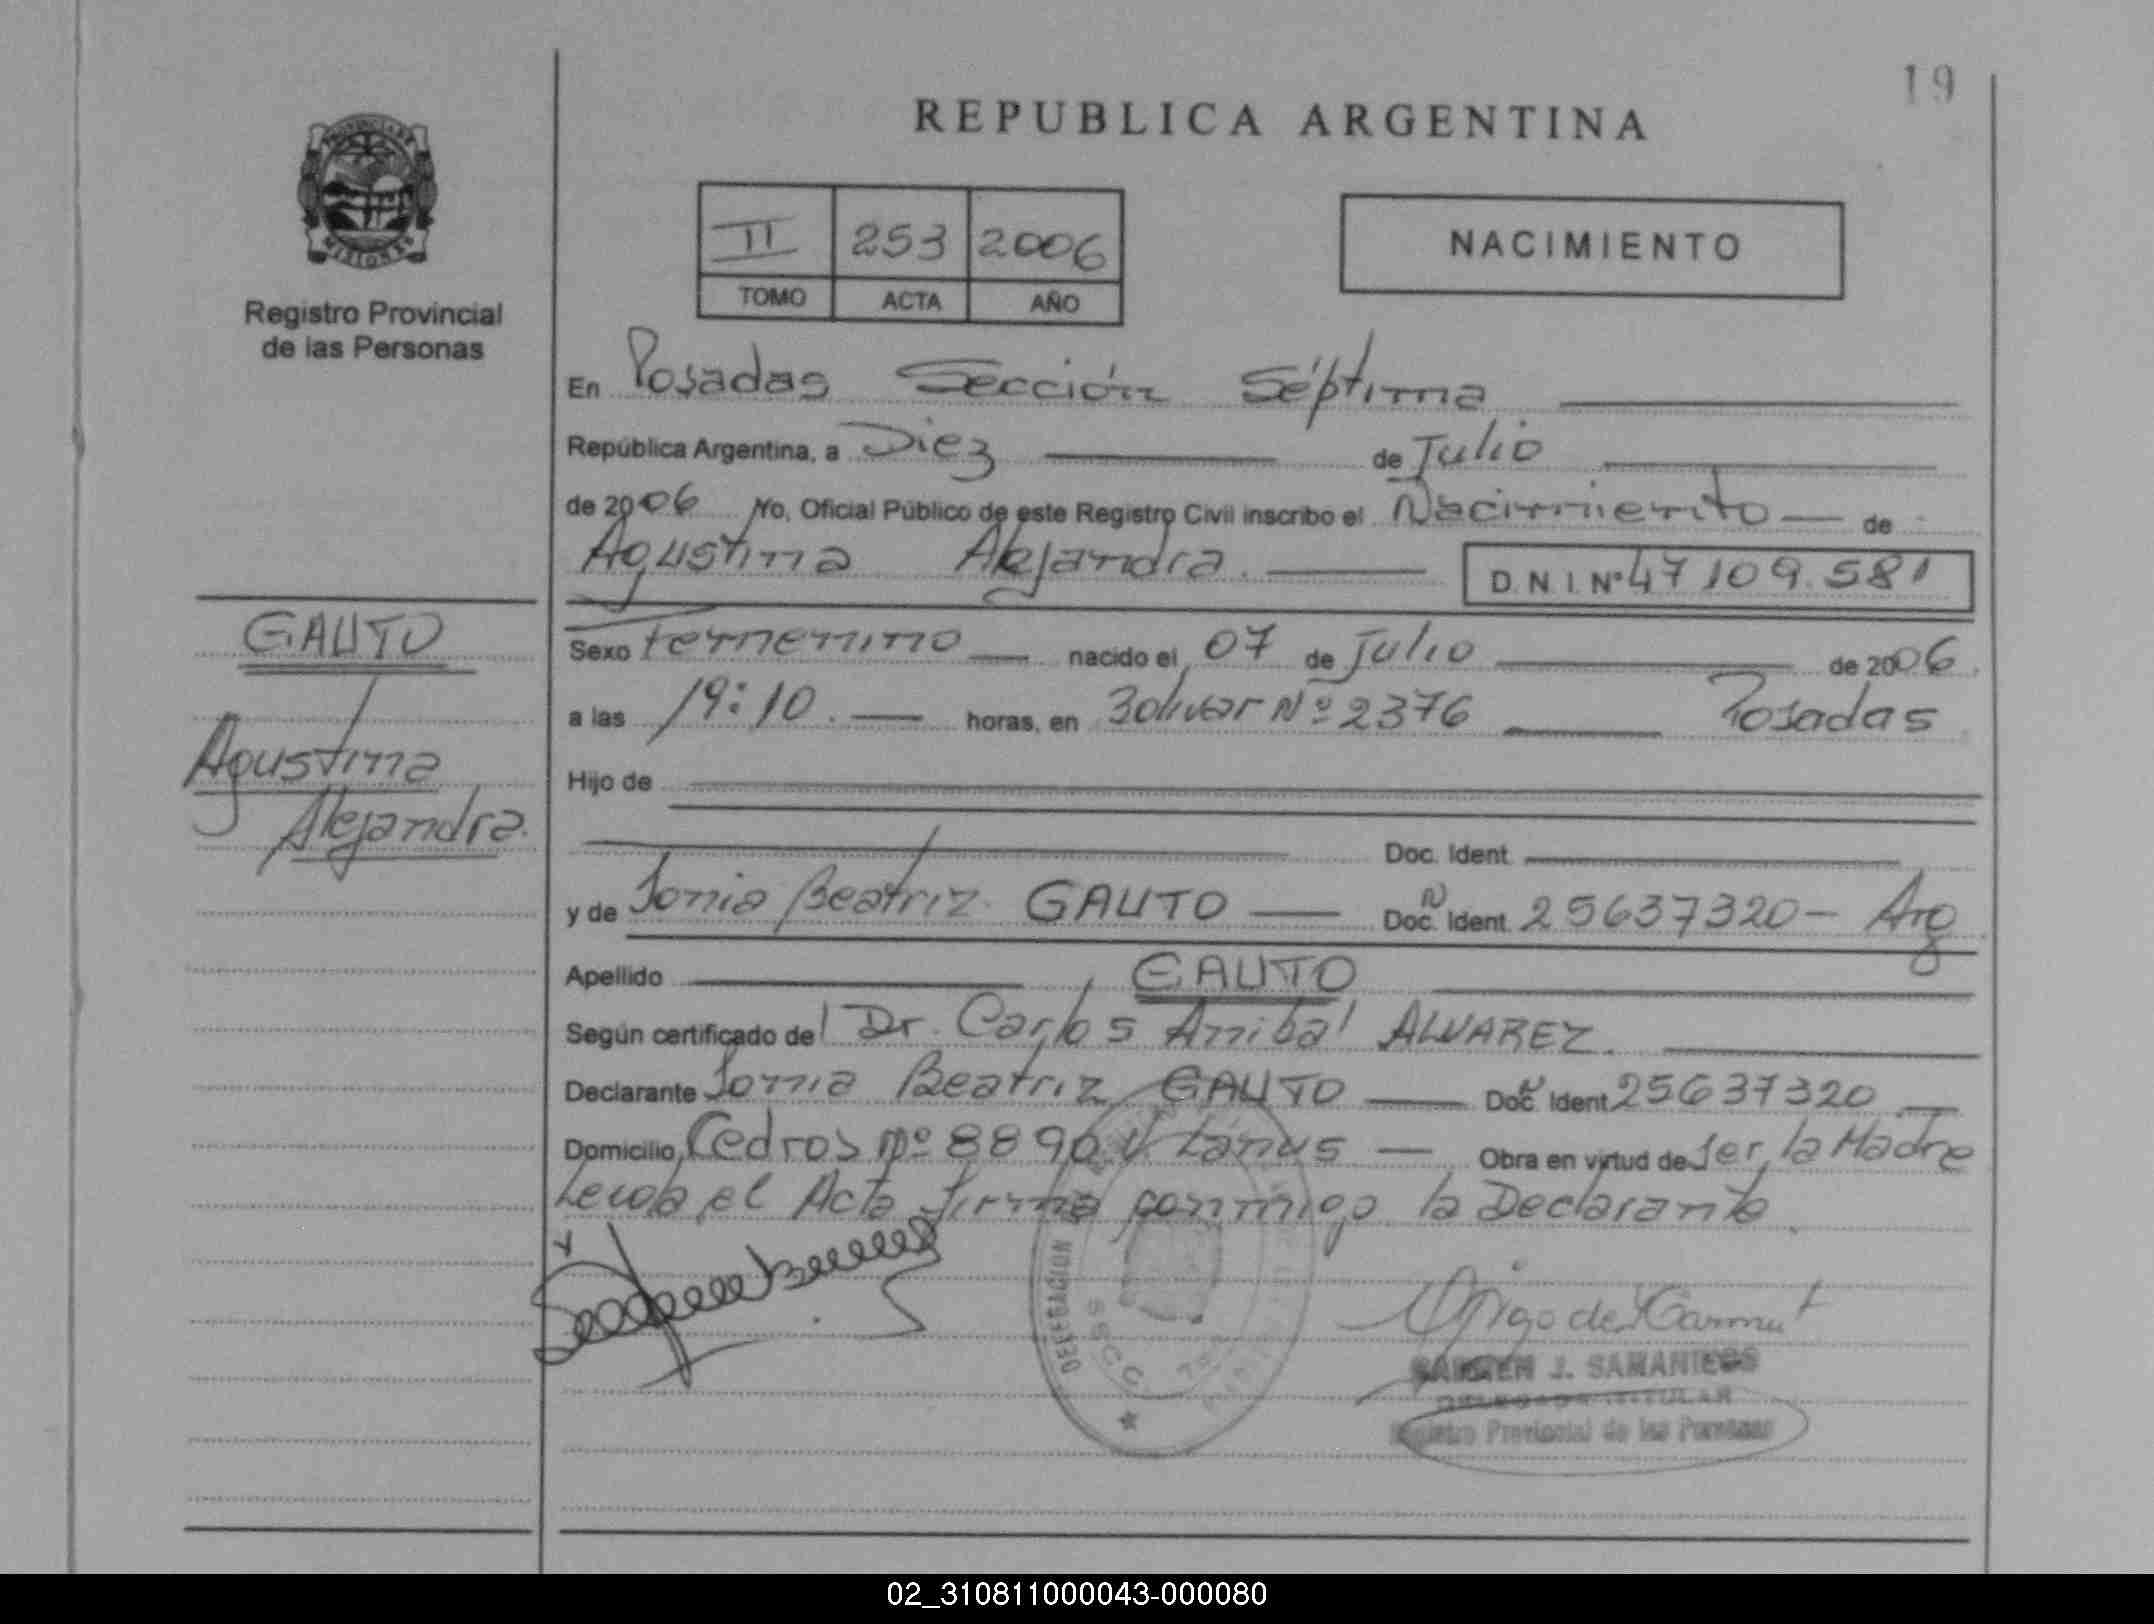 19
REPUBLICA ARGENTINA
PROVINCIA DE
MISIONES
Registro Provincial
de las Personas
II 253 2006
TOMO ACTA AÑO
NACIMIENTO
En Posadas Sección Séptima
República Argentina, a Diez de Julio
de 2006 Yo, Oficial Público de este Registro Civil inscribo el Nacimiento de
Agustina Alejandra. D.N.I. Nº 47109.581
GAUTO
Agustina
Alejandra.
Sexo Femenino nacido el 07 de Julio de 2006
a las 19:10. horas, en Bolivar Nº 2376 Posadas
Hijo de
Doc. Ident.
y de Sonia Beatriz GAUTO Doc. Ident. 25637320 - Arg
Apellido GAUTO
Según certificado del Dr. Carlos Anibal ALVAREZ.
Declarante Sonia Beatriz GAUTO Doc. Ident. 25637320
Domicilio Cedros nº 8890 V. Lanus Obra en virtud de Ser la Madre
Leida el Acta firma conmigo la Declarante.
DELEGACION
S C C
CARMEN J. SAMANIEGO
DELEGADA TITULAR
Registro Provincial de las Personas
02_310811000043-000080